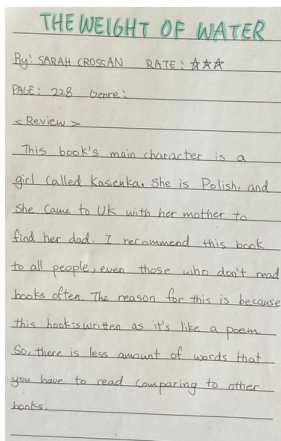 THE WEIGHT OF WATER
By: SARAH CROSSAN RATE: ☆☆☆
PAGE: 228 Genre:
<Review>
This book's main character is a
girl called Kasienka. She is Polish, and
she came to UK with her mother to
find her dad. I recommend this book
to all people, even those who don't read
books often. The reason for this is because
this book is written as it's like a poem.
So, there is less amount of words that
you have to read comparing to other
books.